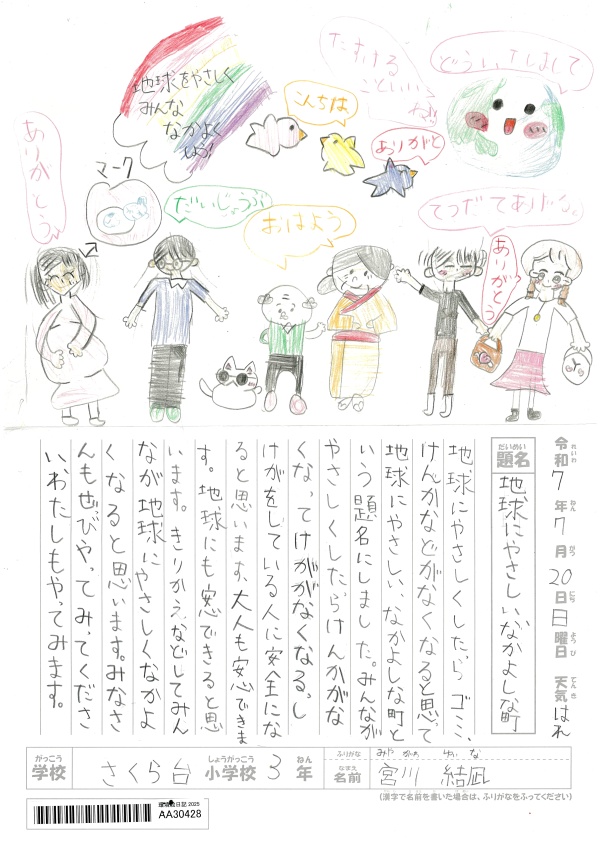 地球をやさしく
みんな
なかよく
しよう
こんちは
たすける
こといい
ねぇ
どういたしまして
ありがと
ありがとう
マーク
だいじょうぶ
おはよう
てつだてあげる。
ありがとう
令和7年7月20日日曜日 天気はれ
れいわ ねん がつ にち ようび てんき
だいめい
題名 地球にやさしいなかよしな町
地球にやさしくしたら ゴミ、
けんかなどがなくなると思って
地球にやさしい、なかよしな町と
いう題名にしました。みんなが
やさしくしたらけんかがな
くなってけががなくなるっし
けがをしている人に安全にな
ると思います、大人も安心できま
す。地球にも安心できると思
います。きりかえなどしてみん
なが地球にやさしくなかよ
くなると思います。みなさ
んもぜひやってみってくださ
いわたしもやってみます。
がっこう しょうがっこう ねん
学校 さくら台 小学校 3年
ふりがな みやがわ ゆいな
なまえ
名前 宮川 結凪
(漢字で名前を書いた場合は、ふりがなをふってください)
環境絵日記 2025
AA30428